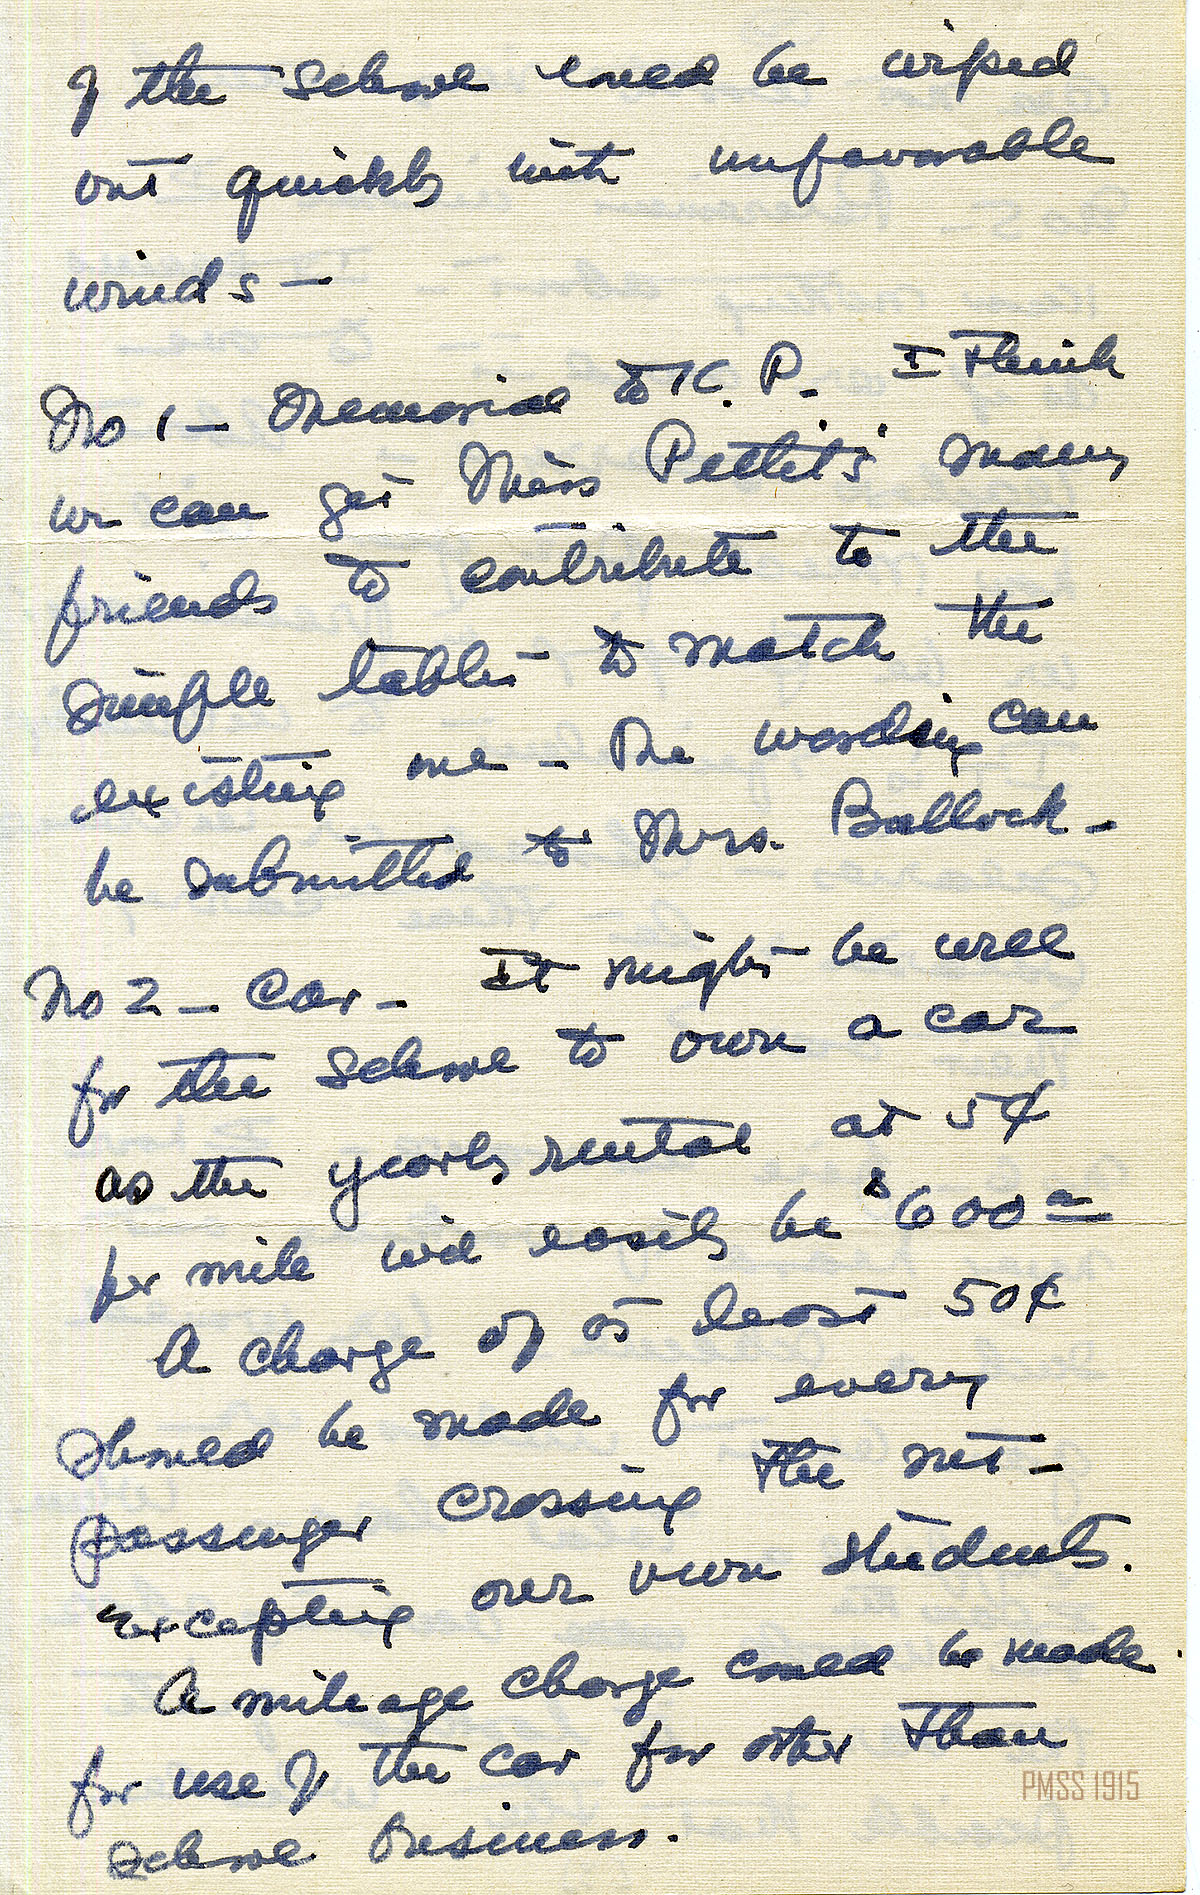 of the School could be wiped
out quickly with unfavorable
winds —
No 1 — Memorial to K. P. I think
we can get Miss Pettit's many
friends to contribute to the
simple tablet to match the
existing one — The wording can
be submitted to Mrs. Bullock —
No 2 — Car — It might be well
for the School to own a car
as the yearly rental at 5¢
per mile will easily be $600
A charge of at least 50¢
should be made for every
passenger crossing the mt —
excepting our own students.
A mileage charge could be made
for use of the car for other than
School business.
PMSS 1915